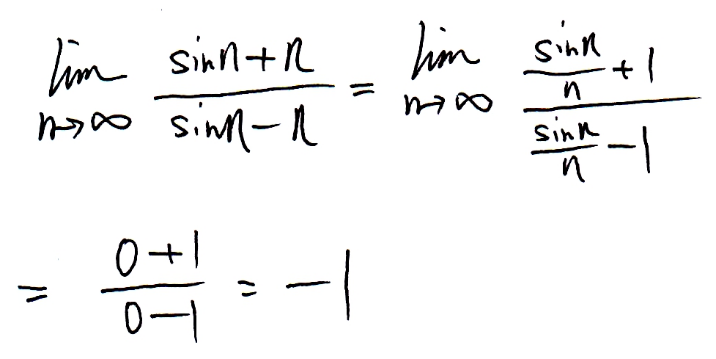 \lim_{n \to \infty} \frac{\sin n + n}{\sin n - n} = \lim_{n \to \infty} \frac{\frac{\sin n}{n} + 1}{\frac{\sin n}{n} - 1}
= \frac{0+1}{0-1} = -1